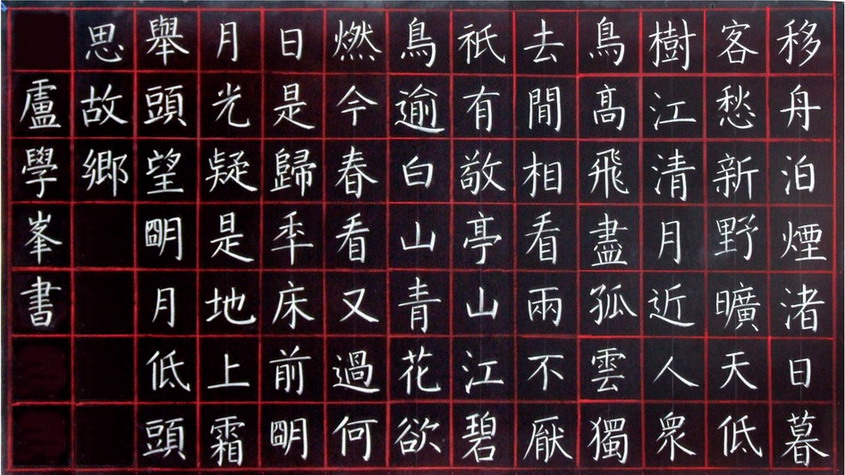 移舟泊煙渚日暮
客愁新野曠天低
樹江清月近人眾
鳥高飛盡孤雲獨
去閒相看兩不厭
祇有敬亭山江碧
鳥逾白山青花欲
燃今春看又過何
日是歸年床前朙
月光疑是地上霜
舉頭望朙月低頭
思故鄉
盧學峯書